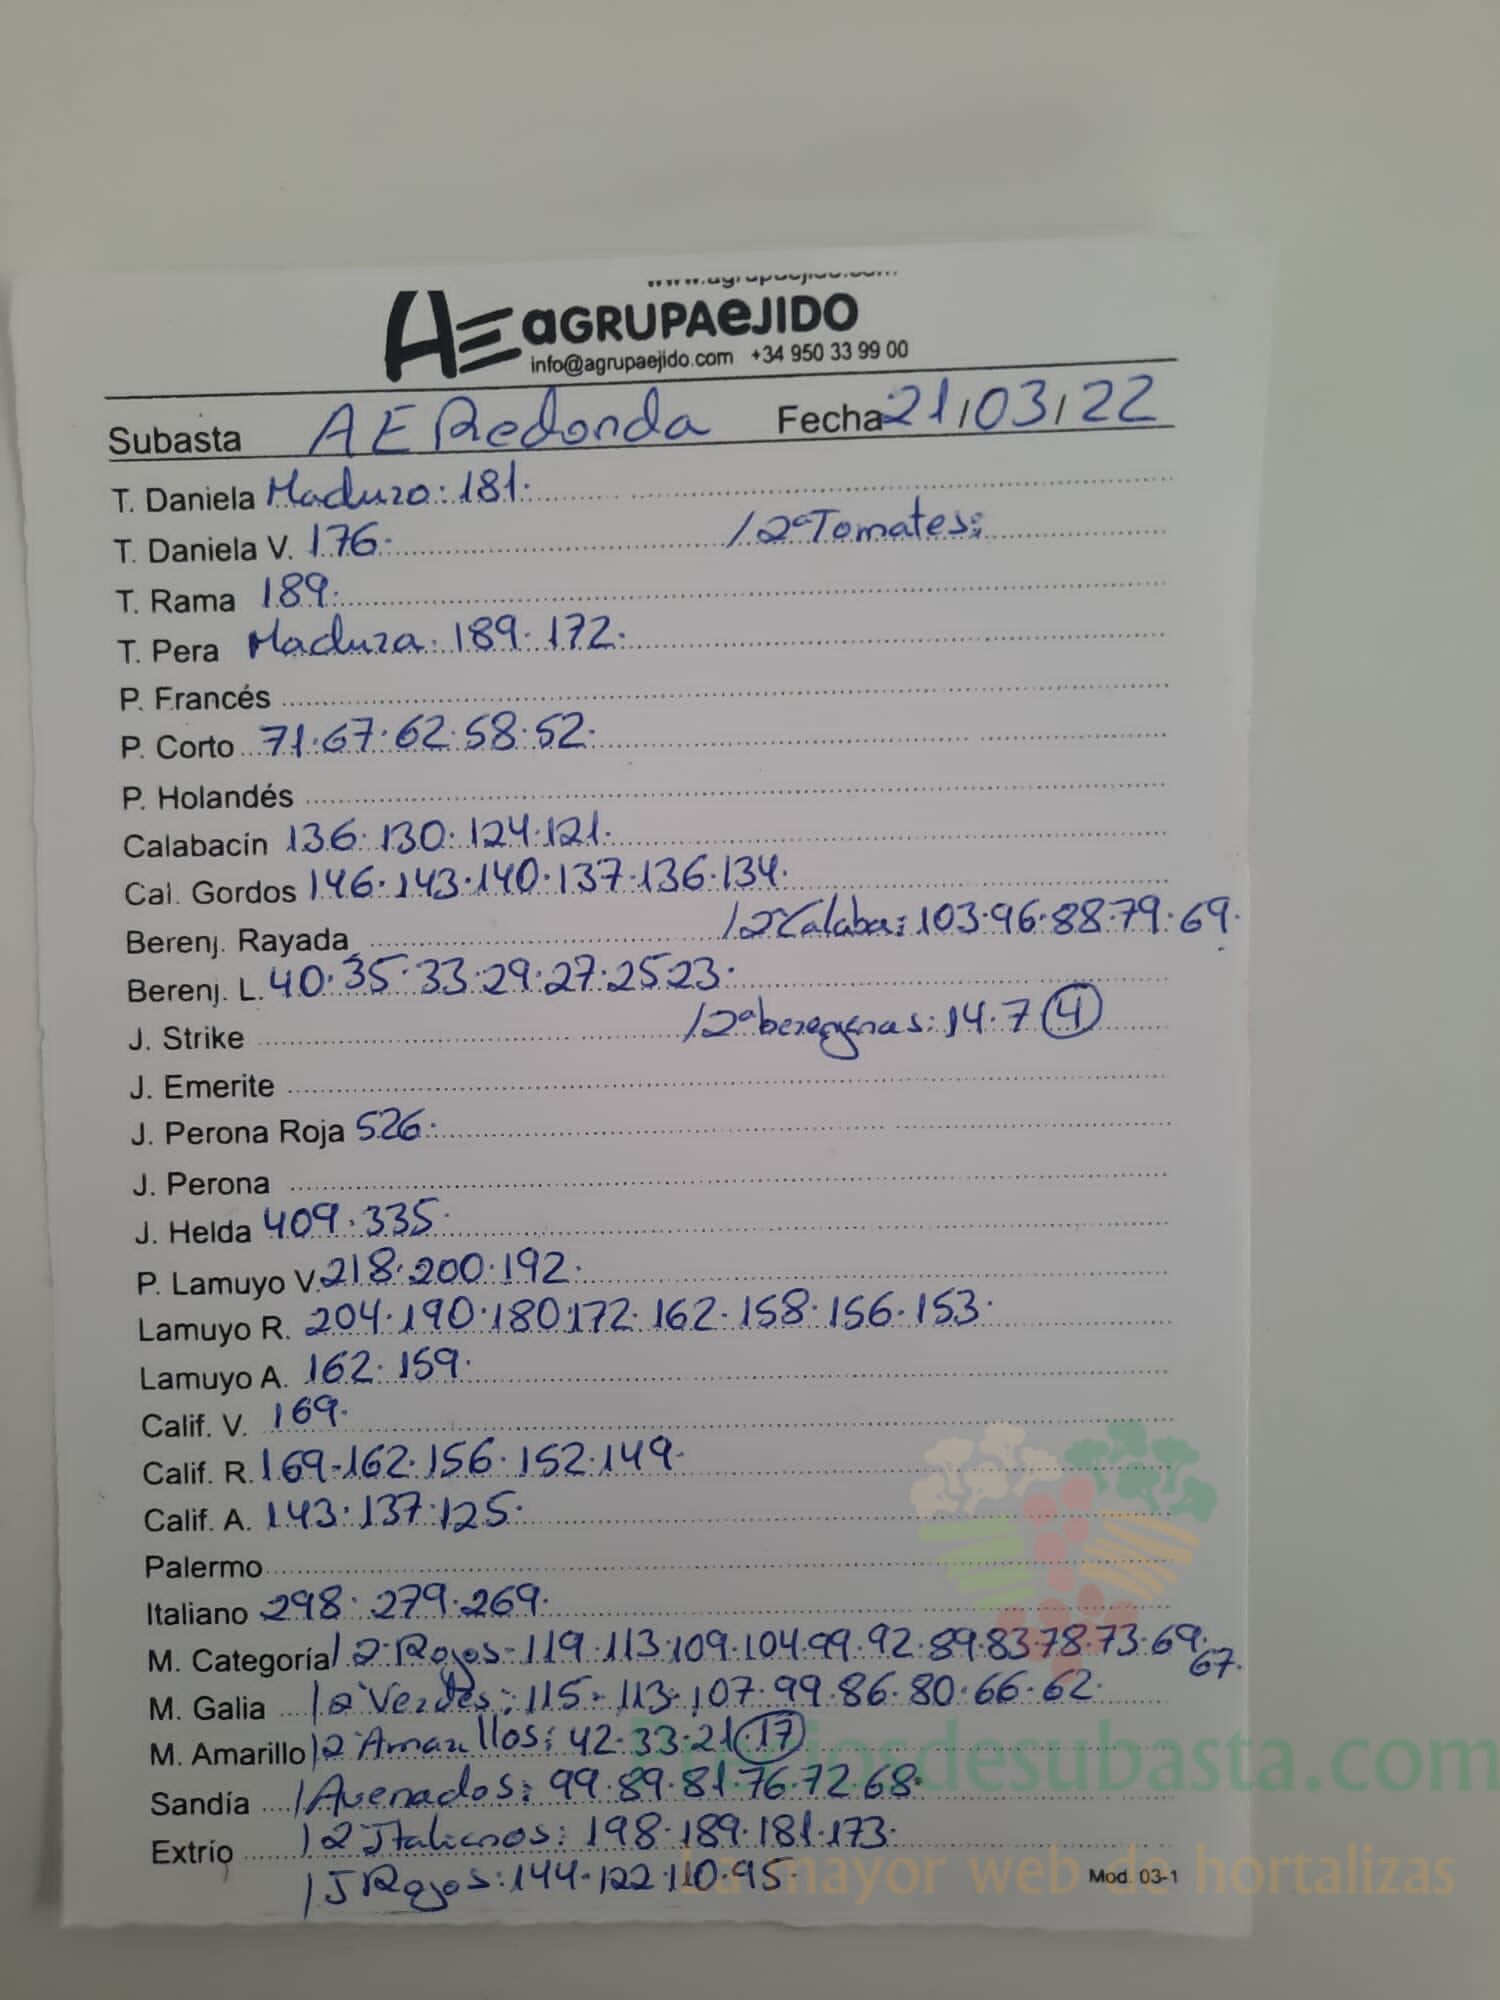 www.agrupaejido.com
AE aGRUPAeJIDO
info@agrupaejido.com +34 950 33 99 00
Subasta AE Redonda Fecha 21/03/22
T. Daniela Maduro: 181.
T. Daniela V. 176. /2ª Tomates:
T. Rama 189.
T. Pera Madura. 189. 172.
P. Francés
P. Corto 71.67.62.58.52.
P. Holandés
Calabacín 136. 130. 124.121.
Cal. Gordos 146.143.140.137.136.134.
Berenj. Rayada /2ª Calaba: 103.96.88.79.69.
Berenj. L. 40.35.33.29.27.25.23.
J. Strike /2ª berengenas: 14.7 4
J. Emerite
J. Perona Roja 526.
J. Perona
J. Helda 409.335.
P. Lamuyo V. 218.200.192.
Lamuyo R. 204.190.180.172.162.158.156.153.
Lamuyo A. 162.159.
Calif. V. 169.
Calif. R. 169-162.156.152.149.
Calif. A. 143.137.125.
Palermo
Italiano 298. 279.269.
M. Categoría /2ª Rojos-119.113.109.104.99.92.89.83.78.73.69.67.
M. Galia /2ª Verdes: 115-113.107.99.86.80.66.62.
M. Amarillo /2ª Amarillos: 42.33.21.17
Sandía /Avenados: 99.89.81.76.72.68.
Extrío /2 Italianos: 198.189.181.173.
/J Rojos: 144.122.110.95.
Mod. 03-1
Preciosdesubasta.com
La mayor web de hortalizas